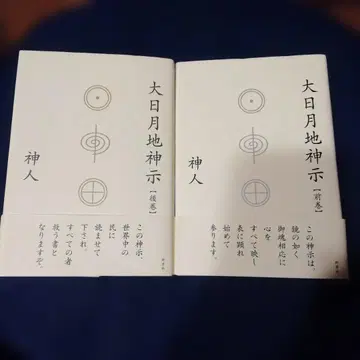 大日月地神示【前巻】
神人
この神示は、
鏡の如く
御魂相応に
心を
すべて映し
表に顕れ
始めて
参ります。
大日月地神示【後巻】
神人
この神示、
世界中の
民に
読ませて
下され。
すべての者
救う書と
なりますぞ。